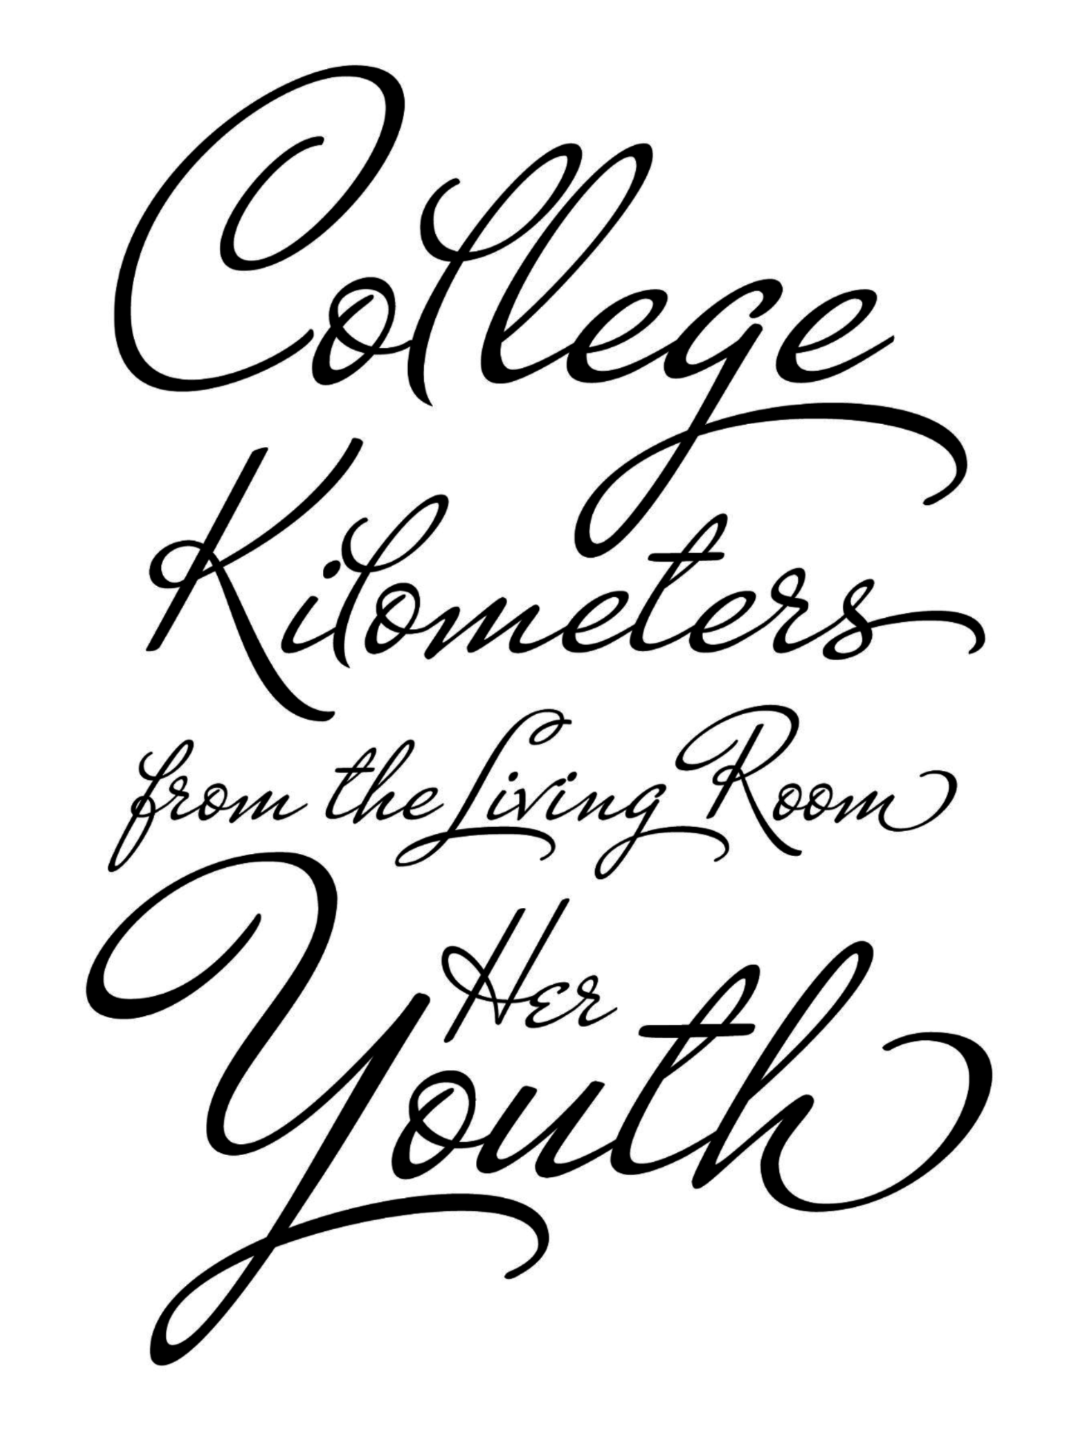 College
Kilometers
from the Living Room
Her
Youth